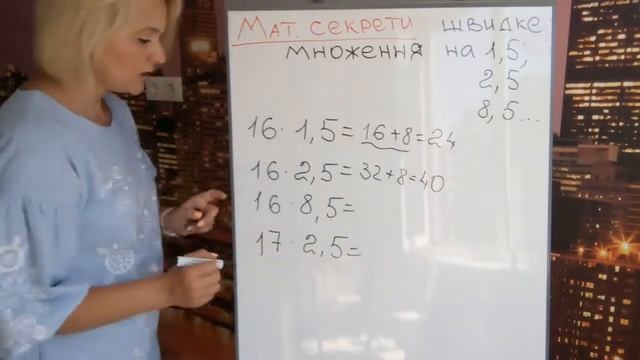 Мат. секрети швидке
множення на 1,5;
2,5
8,5...
16 · 1,5 = 16+8 = 24
16 · 2,5 = 32+8 = 40
16 · 8,5 =
17 · 2,5 =